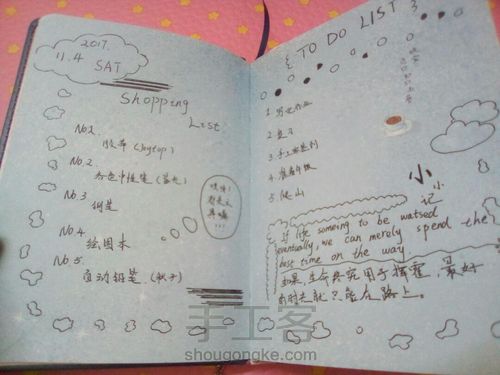 2017.
11.4 SAT
Shopping
List
No1.
胶带 (skytop)
No.2
No.3
No.4
绘图本
No.5
自动铅笔 (秋子)
嘿嘿!
{ TO DO LIST }
1 写完作业
2 复习
3 手工客签到
5 爬山
小
小
记
if life someing to be watsed
eventually, we can merely spend the
best time on the way
如果,生命终究用于挥霍,最好
的时光就只能在路上。
手工客
shougongke.com